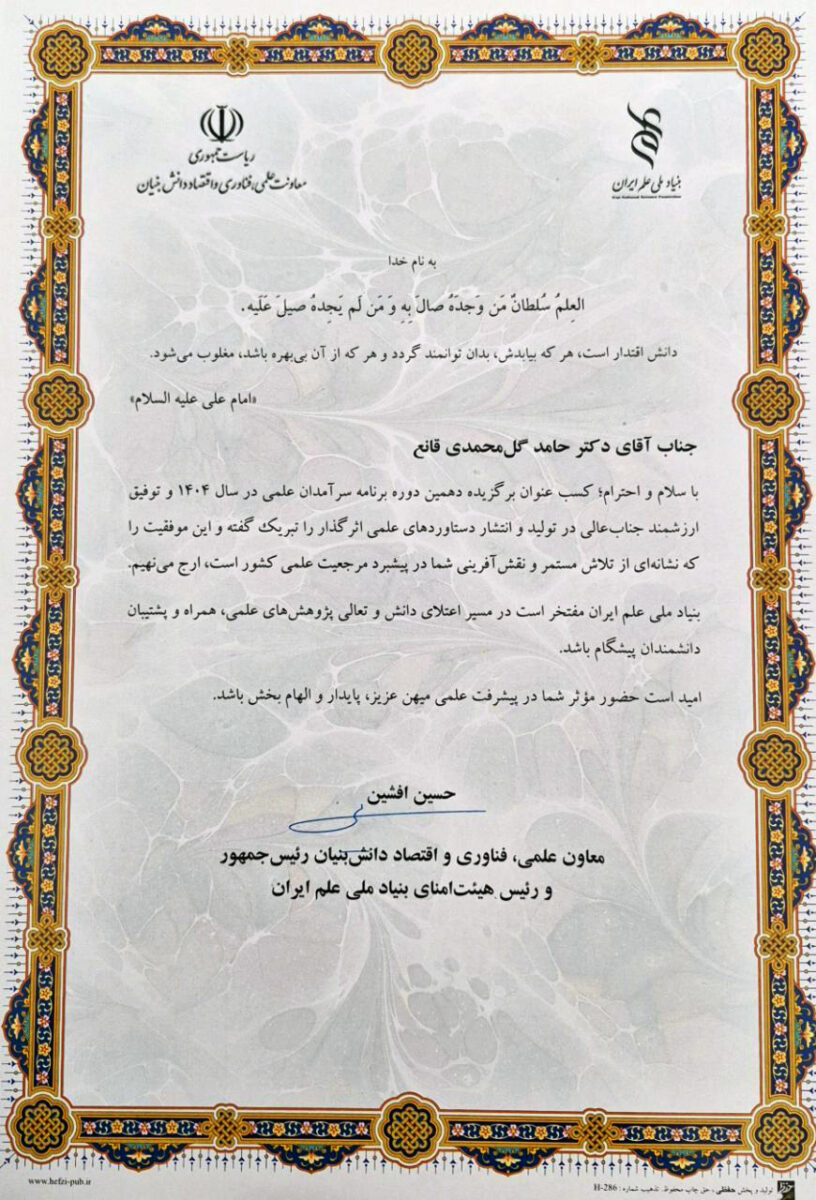 ریاست جمهوری
معاونت علمی، فناوری و اقتصاد دانش بنیان
بنیاد ملی علم ایران
Iran National Science Foundation
به نام خدا
العِلمُ سُلطانٌ مَن وَجَدَهُ صالَ بِهِ وَ مَن لَم یَجِدهُ صیلَ عَلَیه.
دانش اقتدار است، هر که بیابدش، بدان توانمند گردد و هر که از آن بی‌بهره باشد، مغلوب می‌شود.
«امام علی علیه السلام»
جناب آقای دکتر حامد گل‌محمدی قانع
با سلام و احترام؛ کسب عنوان برگزیده دهمین دوره برنامه سرآمدان علمی در سال ۱۴۰۴ و توفیق
ارزشمند جناب‌عالی در تولید و انتشار دستاوردهای علمی اثرگذار را تبریک گفته و این موفقیت را
که نشانه‌ای از تلاش مستمر و نقش‌آفرینی شما در پیشبرد مرجعیت علمی کشور است، ارج می‌نهیم.
بنیاد ملی علم ایران مفتخر است در مسیر اعتلای دانش و تعالی پژوهش‌های علمی، همراه و پشتیبان
دانشمندان پیشگام باشد.
امید است حضور مؤثر شما در پیشرفت علمی میهن عزیز، پایدار و الهام بخش باشد.
حسین افشین
معاون علمی، فناوری و اقتصاد دانش‌بنیان رئیس‌جمهور
و رئیس هیئت‌امنای بنیاد ملی علم ایران
تولید و پخش حفظی، حق چاپ محفوظ. تذهیب شماره: H-286
www.hefzi-pub.ir